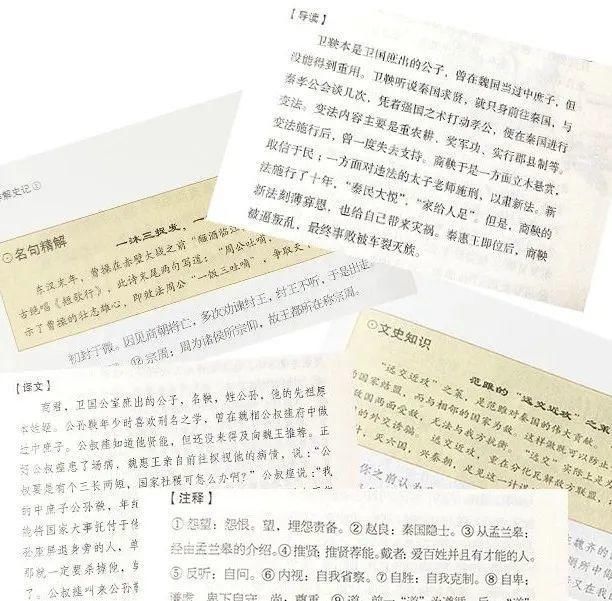 【导读】
卫鞅本是卫国庶出的公子，曾在魏国当过中庶子，但
没能得到重用。卫鞅听说秦国求贤，就只身前往秦国，与
秦孝公会谈几次，凭着强国之术打动孝公，便在秦国进行
变法。变法内容主要是重农耕、奖军功、实行郡县制等。
变法施行后，曾一度失去支持。商鞅于是一方面立木悬赏，
取信于民；一方面对违法的太子老师施刑，以肃新法。新
法施行了十年，“秦民大悦”，“家给人足”。但是，商鞅的
新法刻薄寡恩，也给自己带来灾祸。秦惠王即位后，商鞅
被逼叛乱，最终事败被车裂灭族。
解史记②
⊙名句精解
一沐三捉发，一
东汉末年，曹操在赤壁大战之前“酾酒临江
古绝唱《短歌行》，此诗末尾两句写道：“周公吐哺，
示了曹操的壮志雄心，即效法周公“一饭三吐哺”，争取天
初封于微。因见商朝将亡，多次劝谏纣王，纣王不听，于是出走。
⑫宗周：周为诸侯所宗仰，故王都所在称宗周。
⊙文史知识
范雎的“远交近攻”之策
“远交近攻”之策，是范雎对秦国的伟大贡献。
的国家结盟，而与相邻的国家为敌。这样做既可以防止
敌国两面受敌，无法与我方抗衡。“远交”实际上是为
的外交诱骗。远交近攻，重在分化瓦解敌方联盟，
，灭六国，兴秦朝，足见这一计谋
你之前认为
在魏齐的
厕所中侮
又在我
【译文】
商君，卫国公室庶出的公子，名鞅，姓公孙，他的先祖原
本姓姬。公孙鞅年少时喜欢刑名之学，曾在魏相公叔痤府中做
过中庶子。公叔痤知道他贤能，但还没来得及向魏王推荐。正
好公叔痤患了场病，魏惠王亲自前往探视他的病情，说：“公
叔要是有个三长两短，国家社稷可怎么办啊？”公叔痤说：“我
的中庶子公孙鞅，年纪
能将国家大事托付于他
孙痤屏退身旁的人，单
那就一定要杀掉他，
了。公叔痤叫来公孙鞅
【注释】
①怨望：怨恨。望，埋怨责备。②赵良：秦国隐士。③从孟兰皋：
经由孟兰皋的介绍。④推贤：推贤荐能。戴者：爱百姓并且有才能的人。
⑤反听：自问。⑥内视：自我省察。⑦自胜：自我克制。⑧自卑：
谦虚，卑下自守。尚：尊重。⑨道：前一“道”为遵循，后一“道”